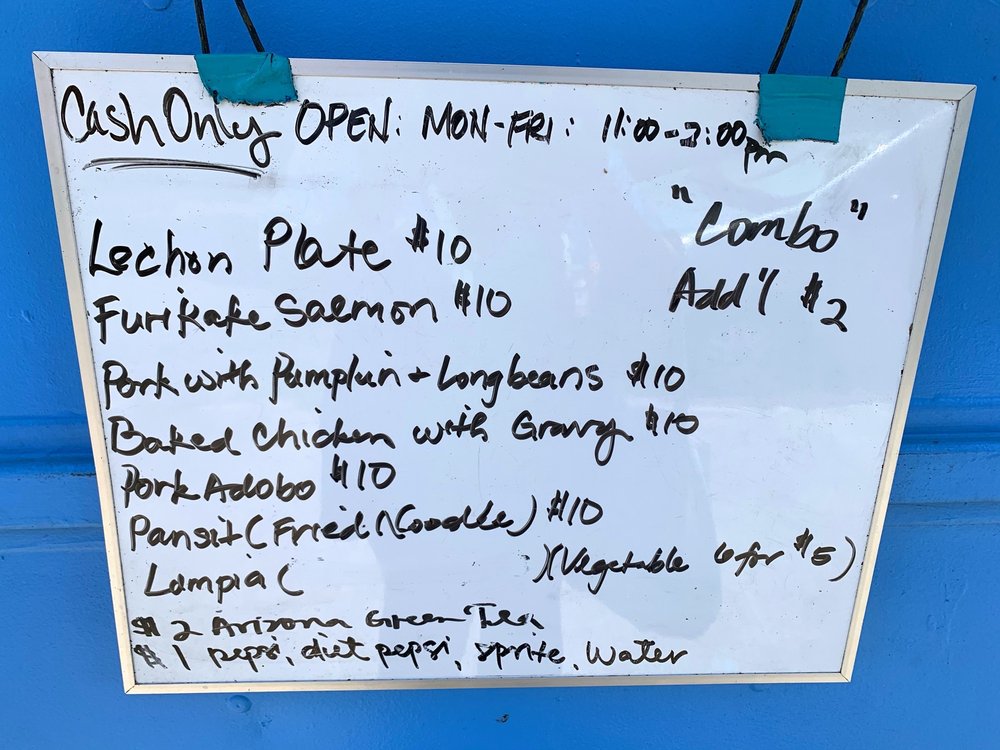 Cash Only OPEN: MON-FRI: 11:00-2:00pm
"Combo"
Add'l $2
Lechon Plate $10
Furikake Salmon $10
Pork with Pumpkin + Longbeans $10
Baked Chicken with Gravy $10
Pork Adobo $10
Pansit (Fried Noodle) $10
Lumpia ( )(Vegetable 6 for $5)
$2 Arizona Green Tea
$1 pepsi, diet pepsi, sprite, water